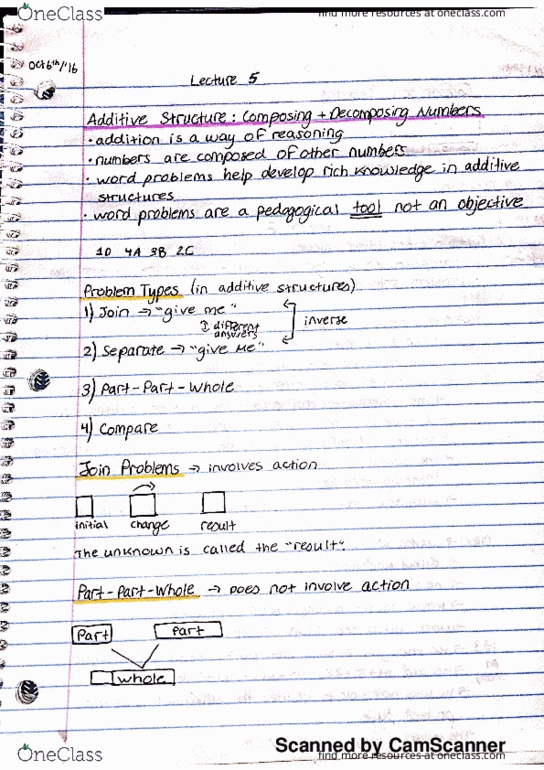 OneClass
find more resources at oneclass.com
Oct 6th/16
Lecture 5
Additive Structure: Composing + Decomposing Numbers
• addition is a way of reasoning
• numbers are composed of other numbers
• word problems help develop rich knowledge in additive
structures
• word problems are a pedagogical tool not an objective
1D 4A 3B 2C
Problem Types (in additive structures)
1) Join → "give me"
↕ different
answers
inverse
2) Separate → "give me"
3) Part-Part-Whole
4) Compare
Join Problems → involves action
initial change result
The unknown is called the "result".
Part-Part-Whole → Does not involve action
Part Part
whole
Scanned by CamScanner
OneClass
find more resources at oneclass.com